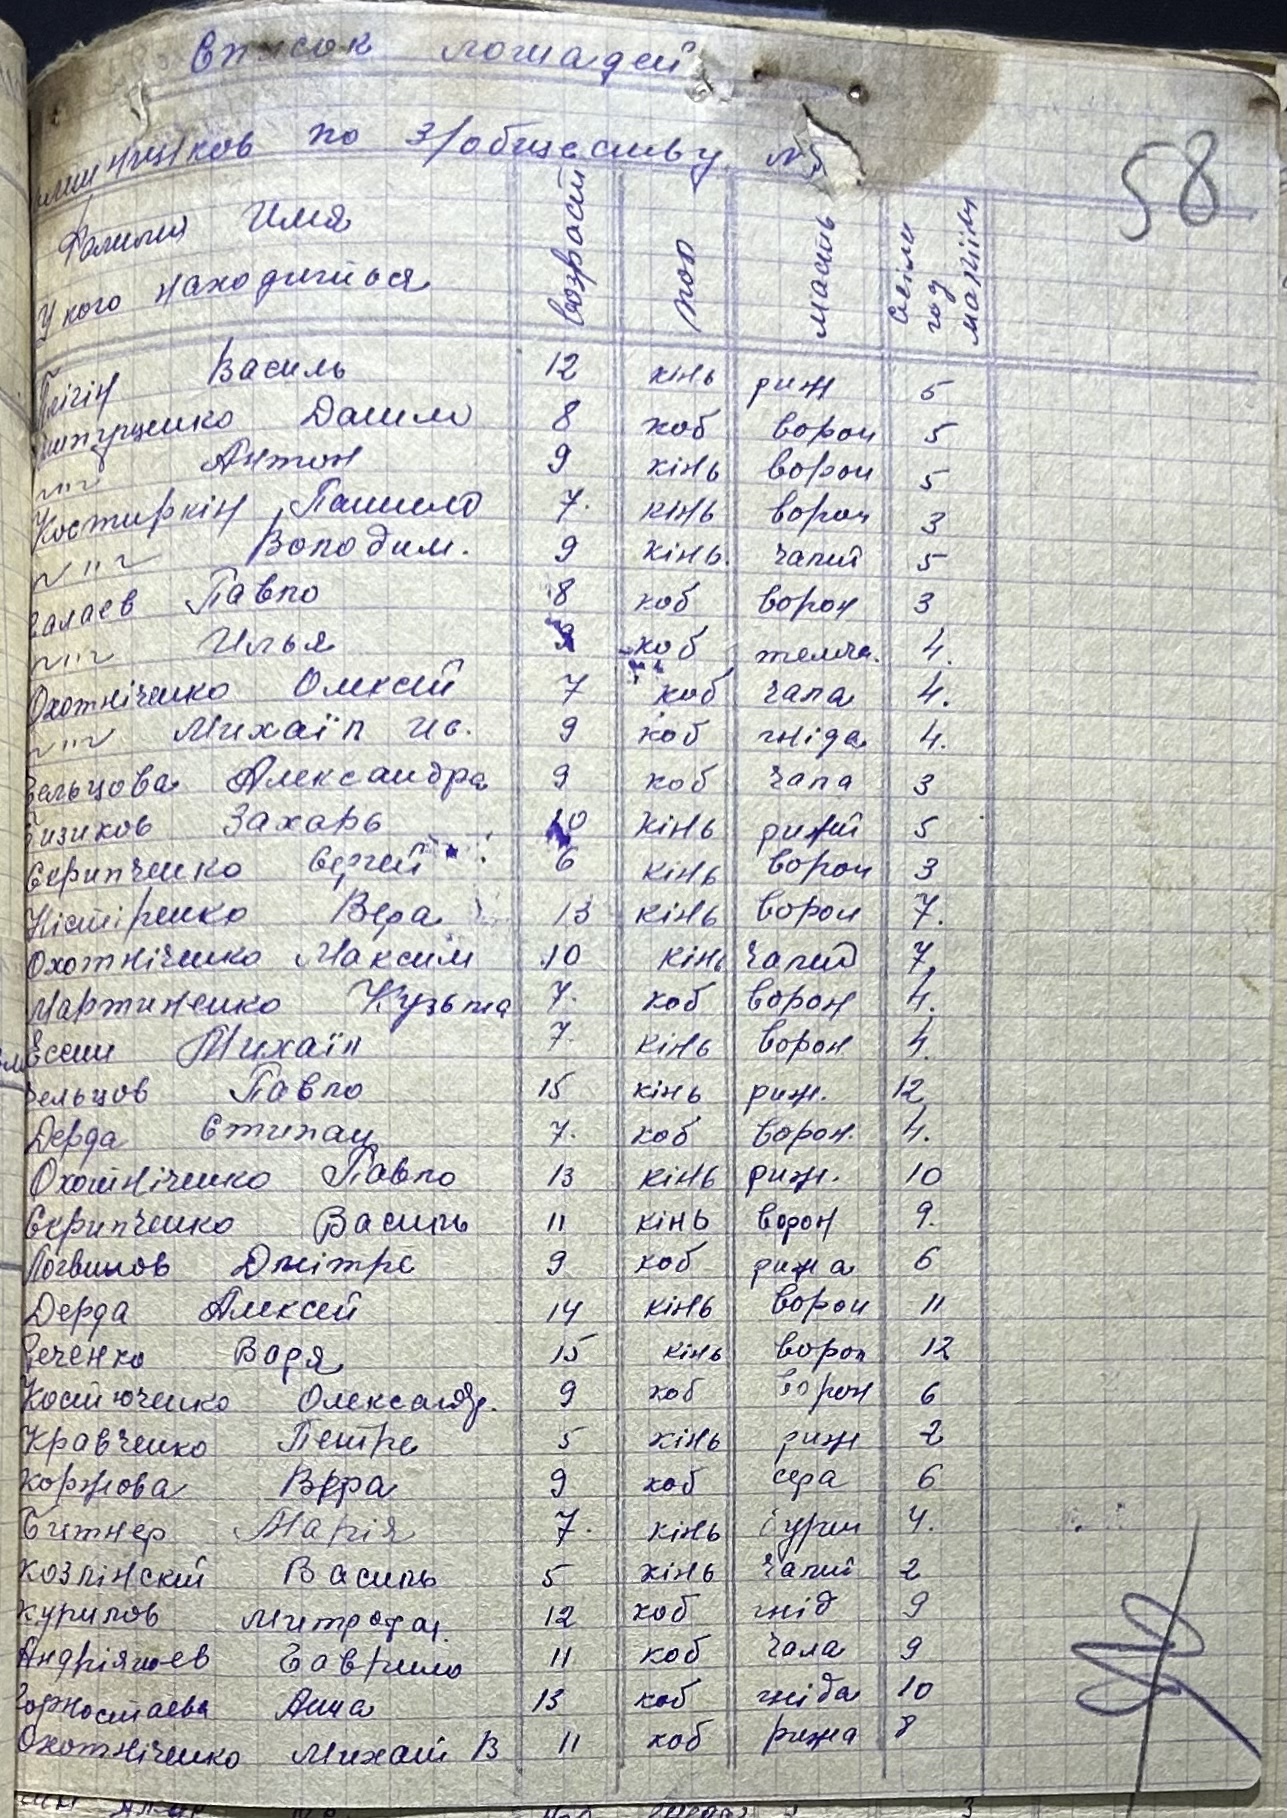 Список лошадей
по З/обществу №
58
Фамилия Имя
У кого находиться
возраст
пол
масть
год
Василь 12 кінь риж 5
Данило 8 коб ворон 5
~"~ Антон 9 кінь ворон 5
Костиркін Панило 7. кінь ворон 3
~"~ Володим. 9 кінь. чалий 5
Павло 8 коб ворон 3
~"~ Илья 9 коб 4.
Охотніченко Олексій 7 коб чала 4.
~"~ Михаіл Ив. 9 коб гніда 4.
ельцова Александра 9 коб чала 3
Бизиков Захарь 10 кінь рижий 5
Скрипченко Сергей 6 кінь ворон 3
Нестіренко Вера 13 кінь ворон 7.
Охотніченко Максим 10 кінь чалий 7.
Мартиненко Кузьма 7. коб ворон 4.
Есин Михаїл 7. кінь ворон 4.
ельцов Павло 15 кінь риж. 12
Дерда Степан 7. коб ворон. 4.
Охотніченко Павло 13 кінь риж. 10
Скрипченко Василь 11 кінь ворон 9.
Логвинов Дмітро 9 коб рижа 6
Дерда Алексей 14 кінь ворон 11
еченко Водя 15 кінь ворон 12
Костюченко Олександр. 9 коб ворон 6
Кравченко Петро 5 кінь риж 2
Коржова Вера 9 коб сера 6
Битнер Марія 7. кінь бурий 4.
Козлінский Василь 5 кінь чалий 2
Курилов Митрофан. 12 коб гнід 9
Андріяшев Гаврило 11 коб чала 9
Горностаева Анна 13 коб гніда 10
Охотніченко Михаил В 11 коб рижа 8